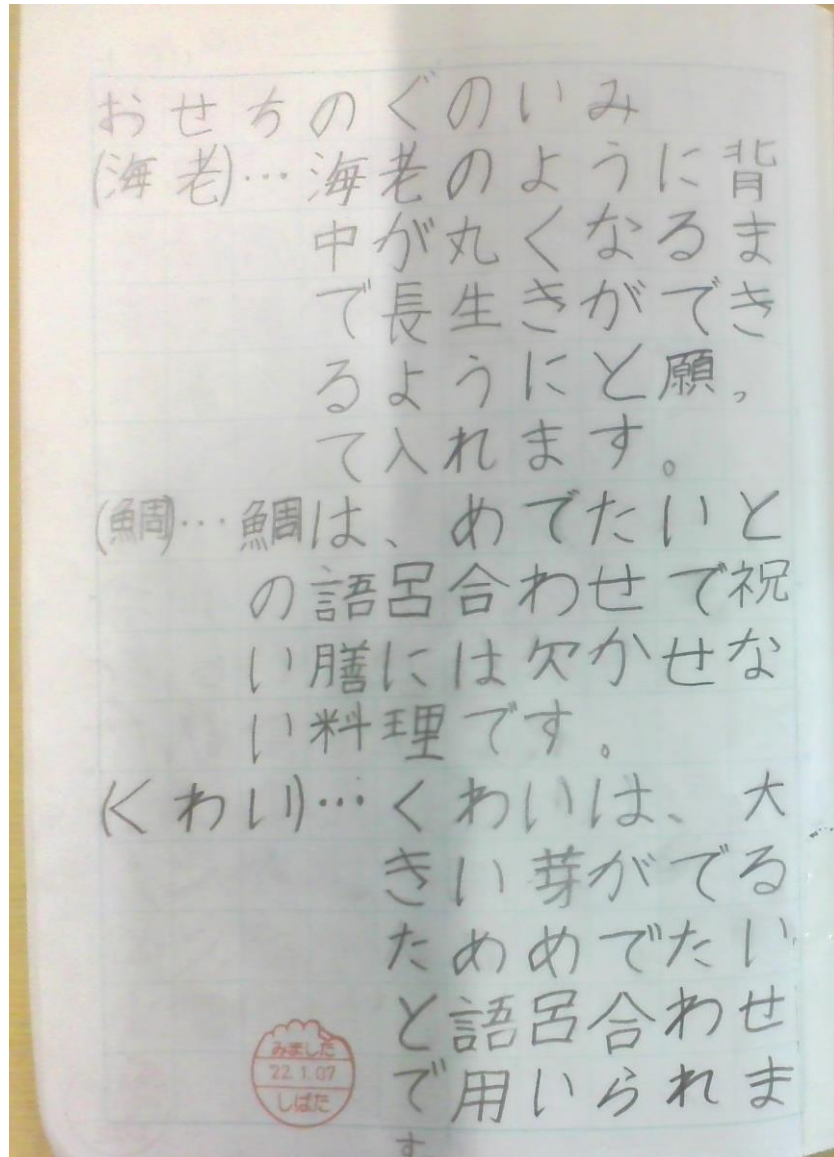 おせちのぐのいみ
(海老)…海老のように背
中が丸くなるま
で長生きができ
るようにと願っ
て入れます。
(鯛)…鯛は、めでたいと
の語呂合わせで祝
い膳には欠かせな
い料理です。
(くわい)…くわいは、大
きい芽がでる
ためめでたい
と語呂合わせ
で用いられま
す
みました
22.1.07
しばた